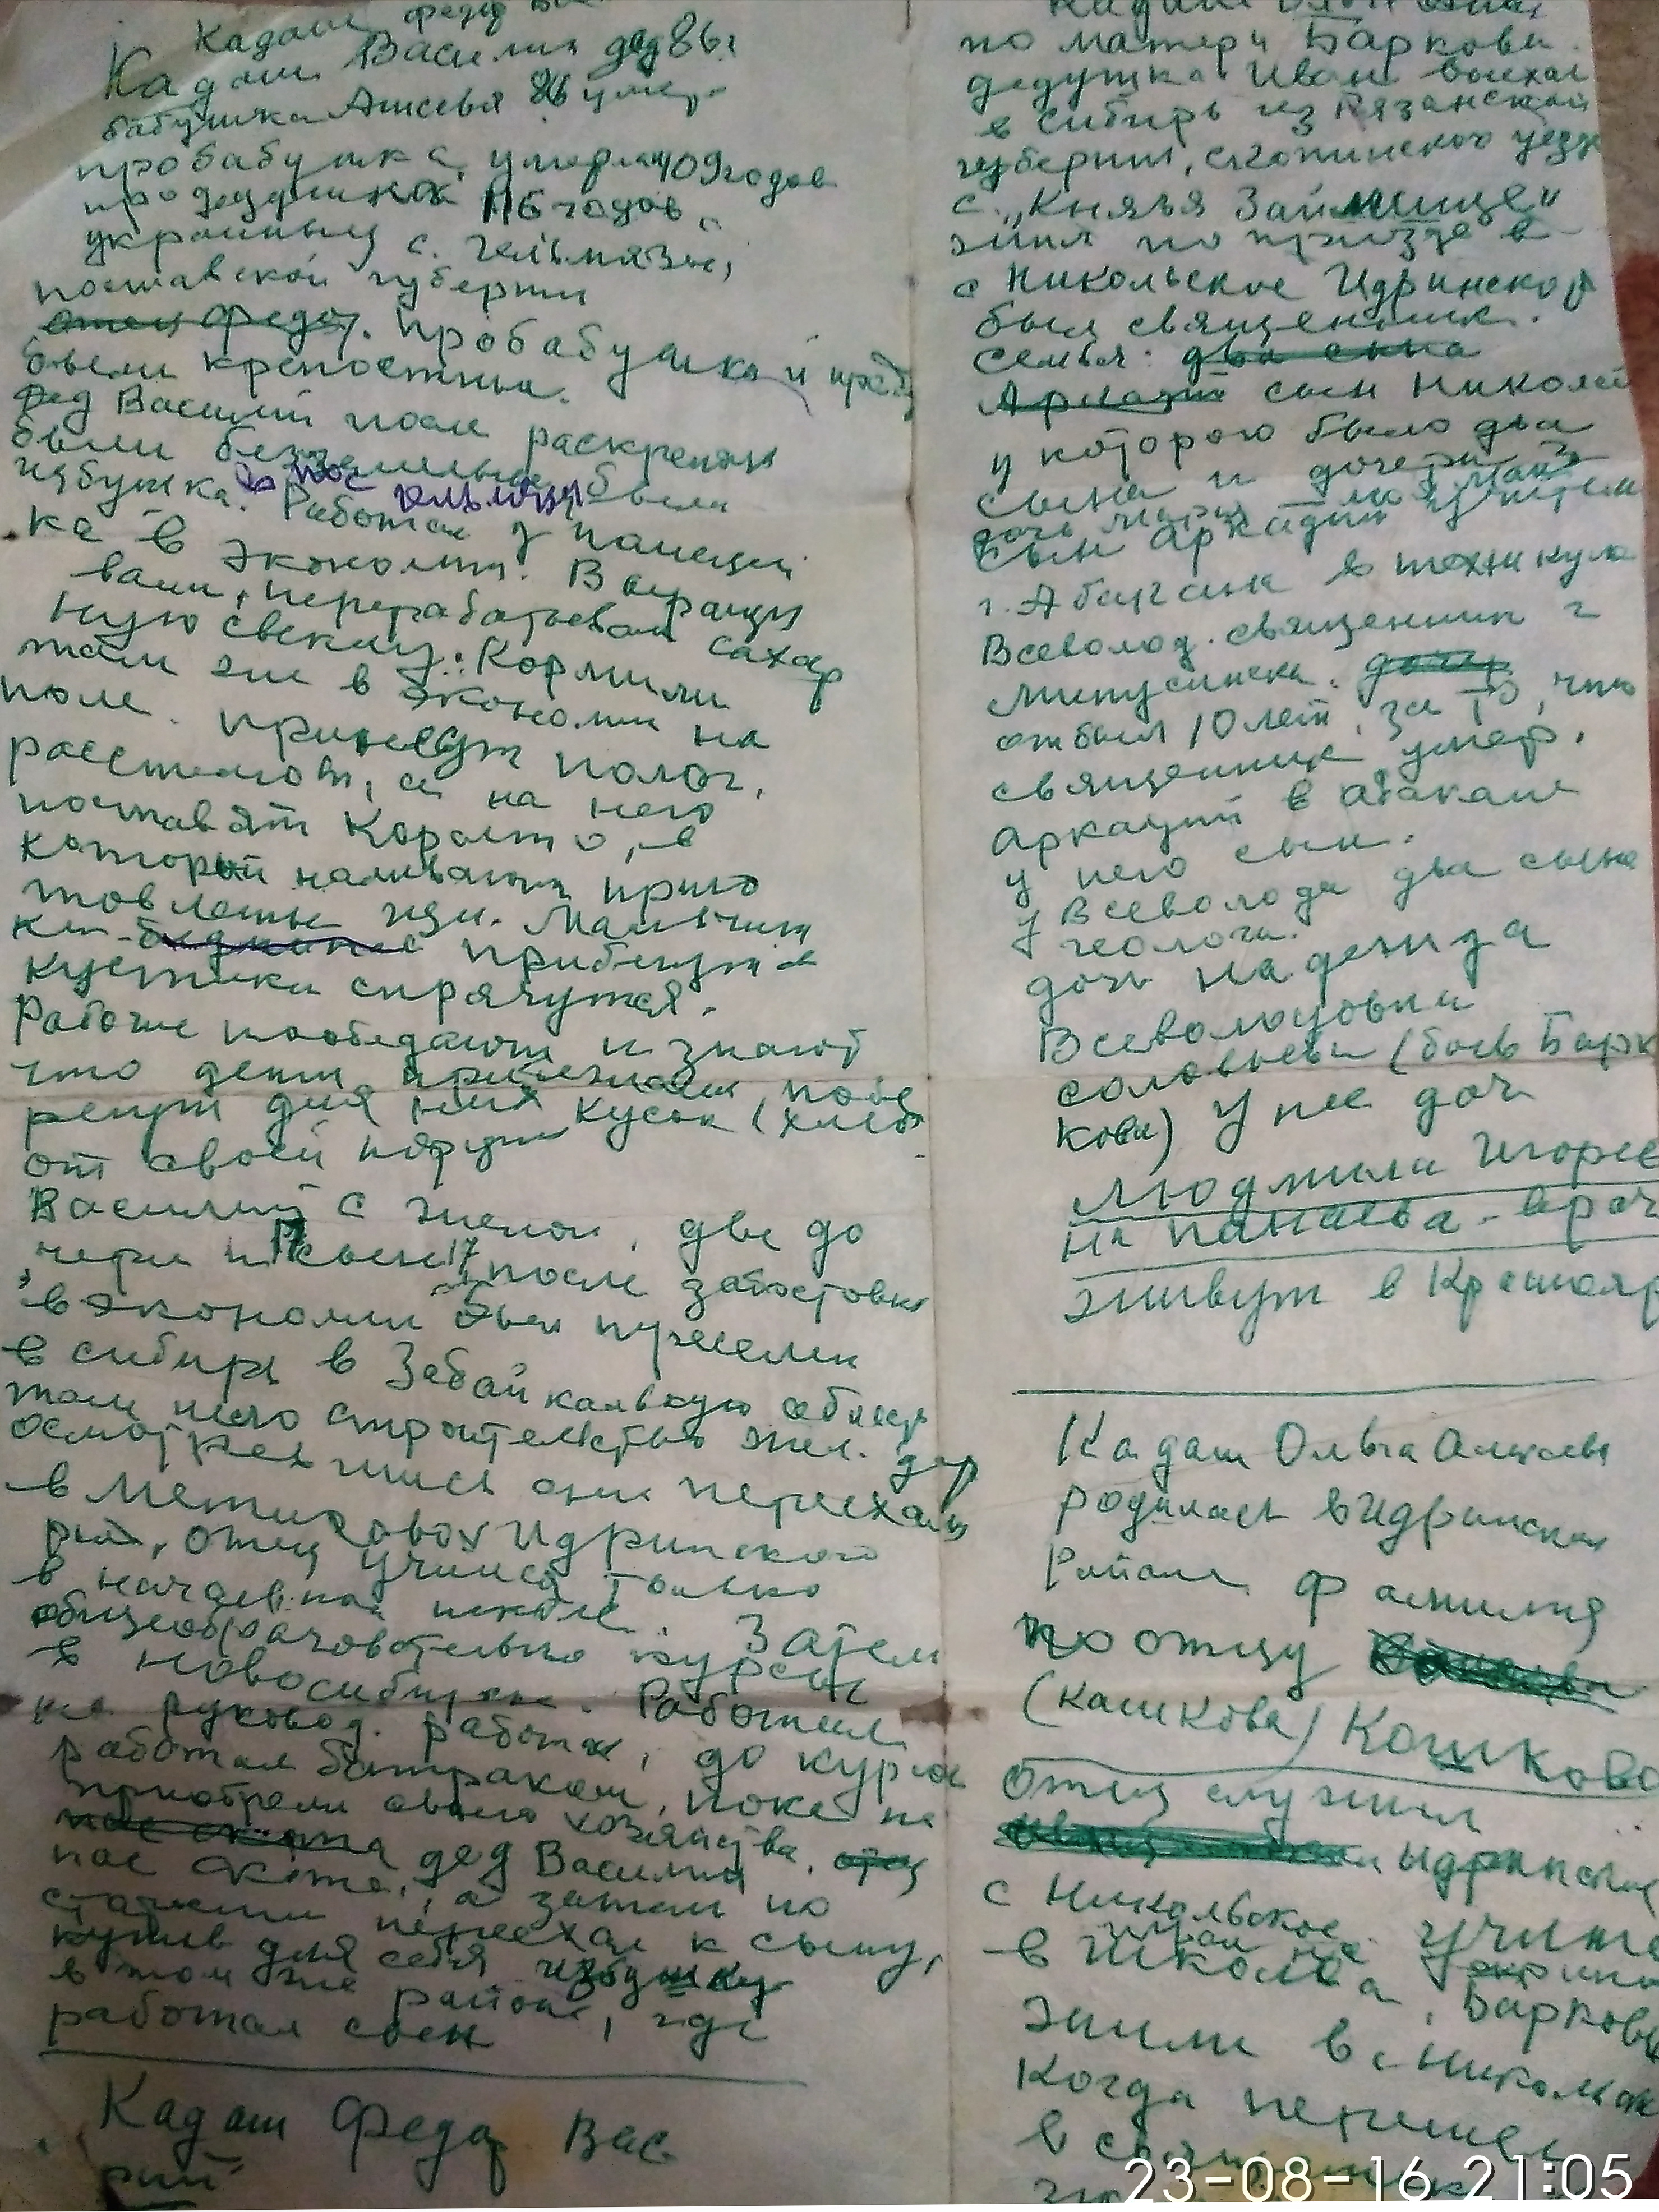 Кадаш Федор Вас
Кадаш Василий дед 86 г
бабушка Алисевья 86 умер.
пробабушка, умерла 109 годов
продедушка 116 годов.
украинцы с. Гельмязы,
полтавской губернии
отец Федор. Пробабушка и прод
были крепостные.
Дед Василий после раскрепощ
были безземельные, была
избушка. в пос гельмязы
Работал у помещи
ка в экономии. Выращи
вали, перерабатывали сахар
ную свеклу. Кормили
там же в экономии на
поле. принесут полог,
расстелют, а на него
поставят корыто, в
который наливают приго
товленные щи. Мальчиш
ки прибегут в
кустики спрячутся.
Рабочие пообедают и знают
что дети прибежали, побе
регут для них кусок (хлеба
от своей порции
Василий с женой, две до
чери и сын 17 после забастовки
в экономии был переселен
в сибирь в Забайкальскую область
там шло строительство жел. дор
осмотревшись они переехали
в Метихово Идринского
рай, отец учился только
в начальной школе. Затем
общеобразовательные курсы
в Новосибирске. Работал
на руковод. работах, до курсов
работал батраком, пока не
приобрели своего хозяйства. отец
пас скота дед Василий
пас скота, а затем по
старости переехал к сыну,
купив для себя избушку
в том же районе, где
работал сын
Кадаш Федор Вас.
рий
по матери Баркова.
дедушка Иван выехал
в Сибирь из Рязанской
губернии, Скопинского уезда
с. „Князя Займище"
жил по приезде в
с Никольское Идринского р
был священник.
Семья: два сына
Аркадий сын Николай
у которого было два
сына и дочери 3
дочь Мария
сын Аркадий учитель
г. Абакана в техникуме
Всеволод. священник г
Минусинска. дочь
отбыл 10 лет, за то, что
священник умер.
Аркадий в Абакане
у него сын.
у Всеволода два сына
геологи.
дочь Надежда
Всеволодовна
Соловьева (быв Барк
кова) у нее дочь
Людмила Игорев
на Панаева - врач
живут в Краснояр
Кадаш Ольга Алексеев
родилась в Идринском
Районе фамилия
по отцу
(Кашкова) Кошкова
Отец служил
Идринский
с Никольское. учите
в школе,
Барковы
жили в с Никольск
Когда перешел
в
23-08-16 21:05